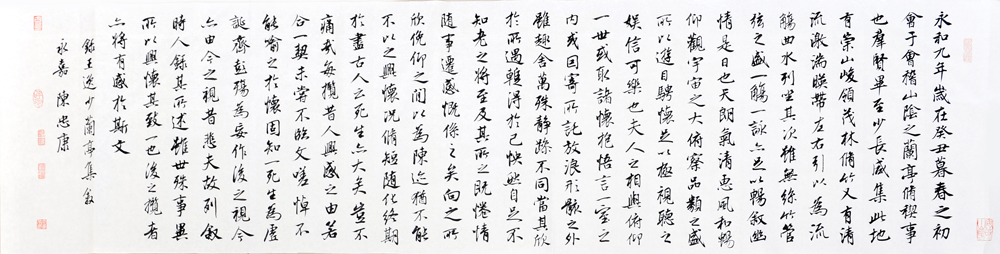 永和九年歲在癸丑暮春之初
會于會稽山陰之蘭亭脩禊事
也羣賢畢至少長咸集此地
有崇山峻領茂林脩竹又有清
流激湍暎帶左右引以為流
觴曲水列坐其次雖無絲竹管
弦之盛一觴一詠亦足以暢敘幽
情是日也天朗氣清惠風和暢
仰觀宇宙之大俯察品類之盛
所以遊目騁懷足以極視聽之
娛信可樂也夫人之相與俯仰
一世或取諸懷抱悟言一室之
內或因寄所託放浪形骸之外
雖趣舍萬殊靜躁不同當其欣
於所遇蹔得於己怏然自足不
知老之將至及其所之既惓情
隨事遷感慨係之矣向之所
欣俛仰之間以為陳迹猶不能
不以之興懷況脩短隨化終期
於盡古人云死生亦大矣豈不
痛哉每攬昔人興感之由若
合一契未嘗不臨文嗟悼不
能喻之於懷固知一死生為虛
誕齊彭殤為妄作後之視今
亦由今之視昔悲夫故列敘
時人錄其所述雖世殊事異
所以興懷其致一也後之攬者
亦將有感於斯文
錄王逸少蘭亭集敘
永嘉 陳忠康